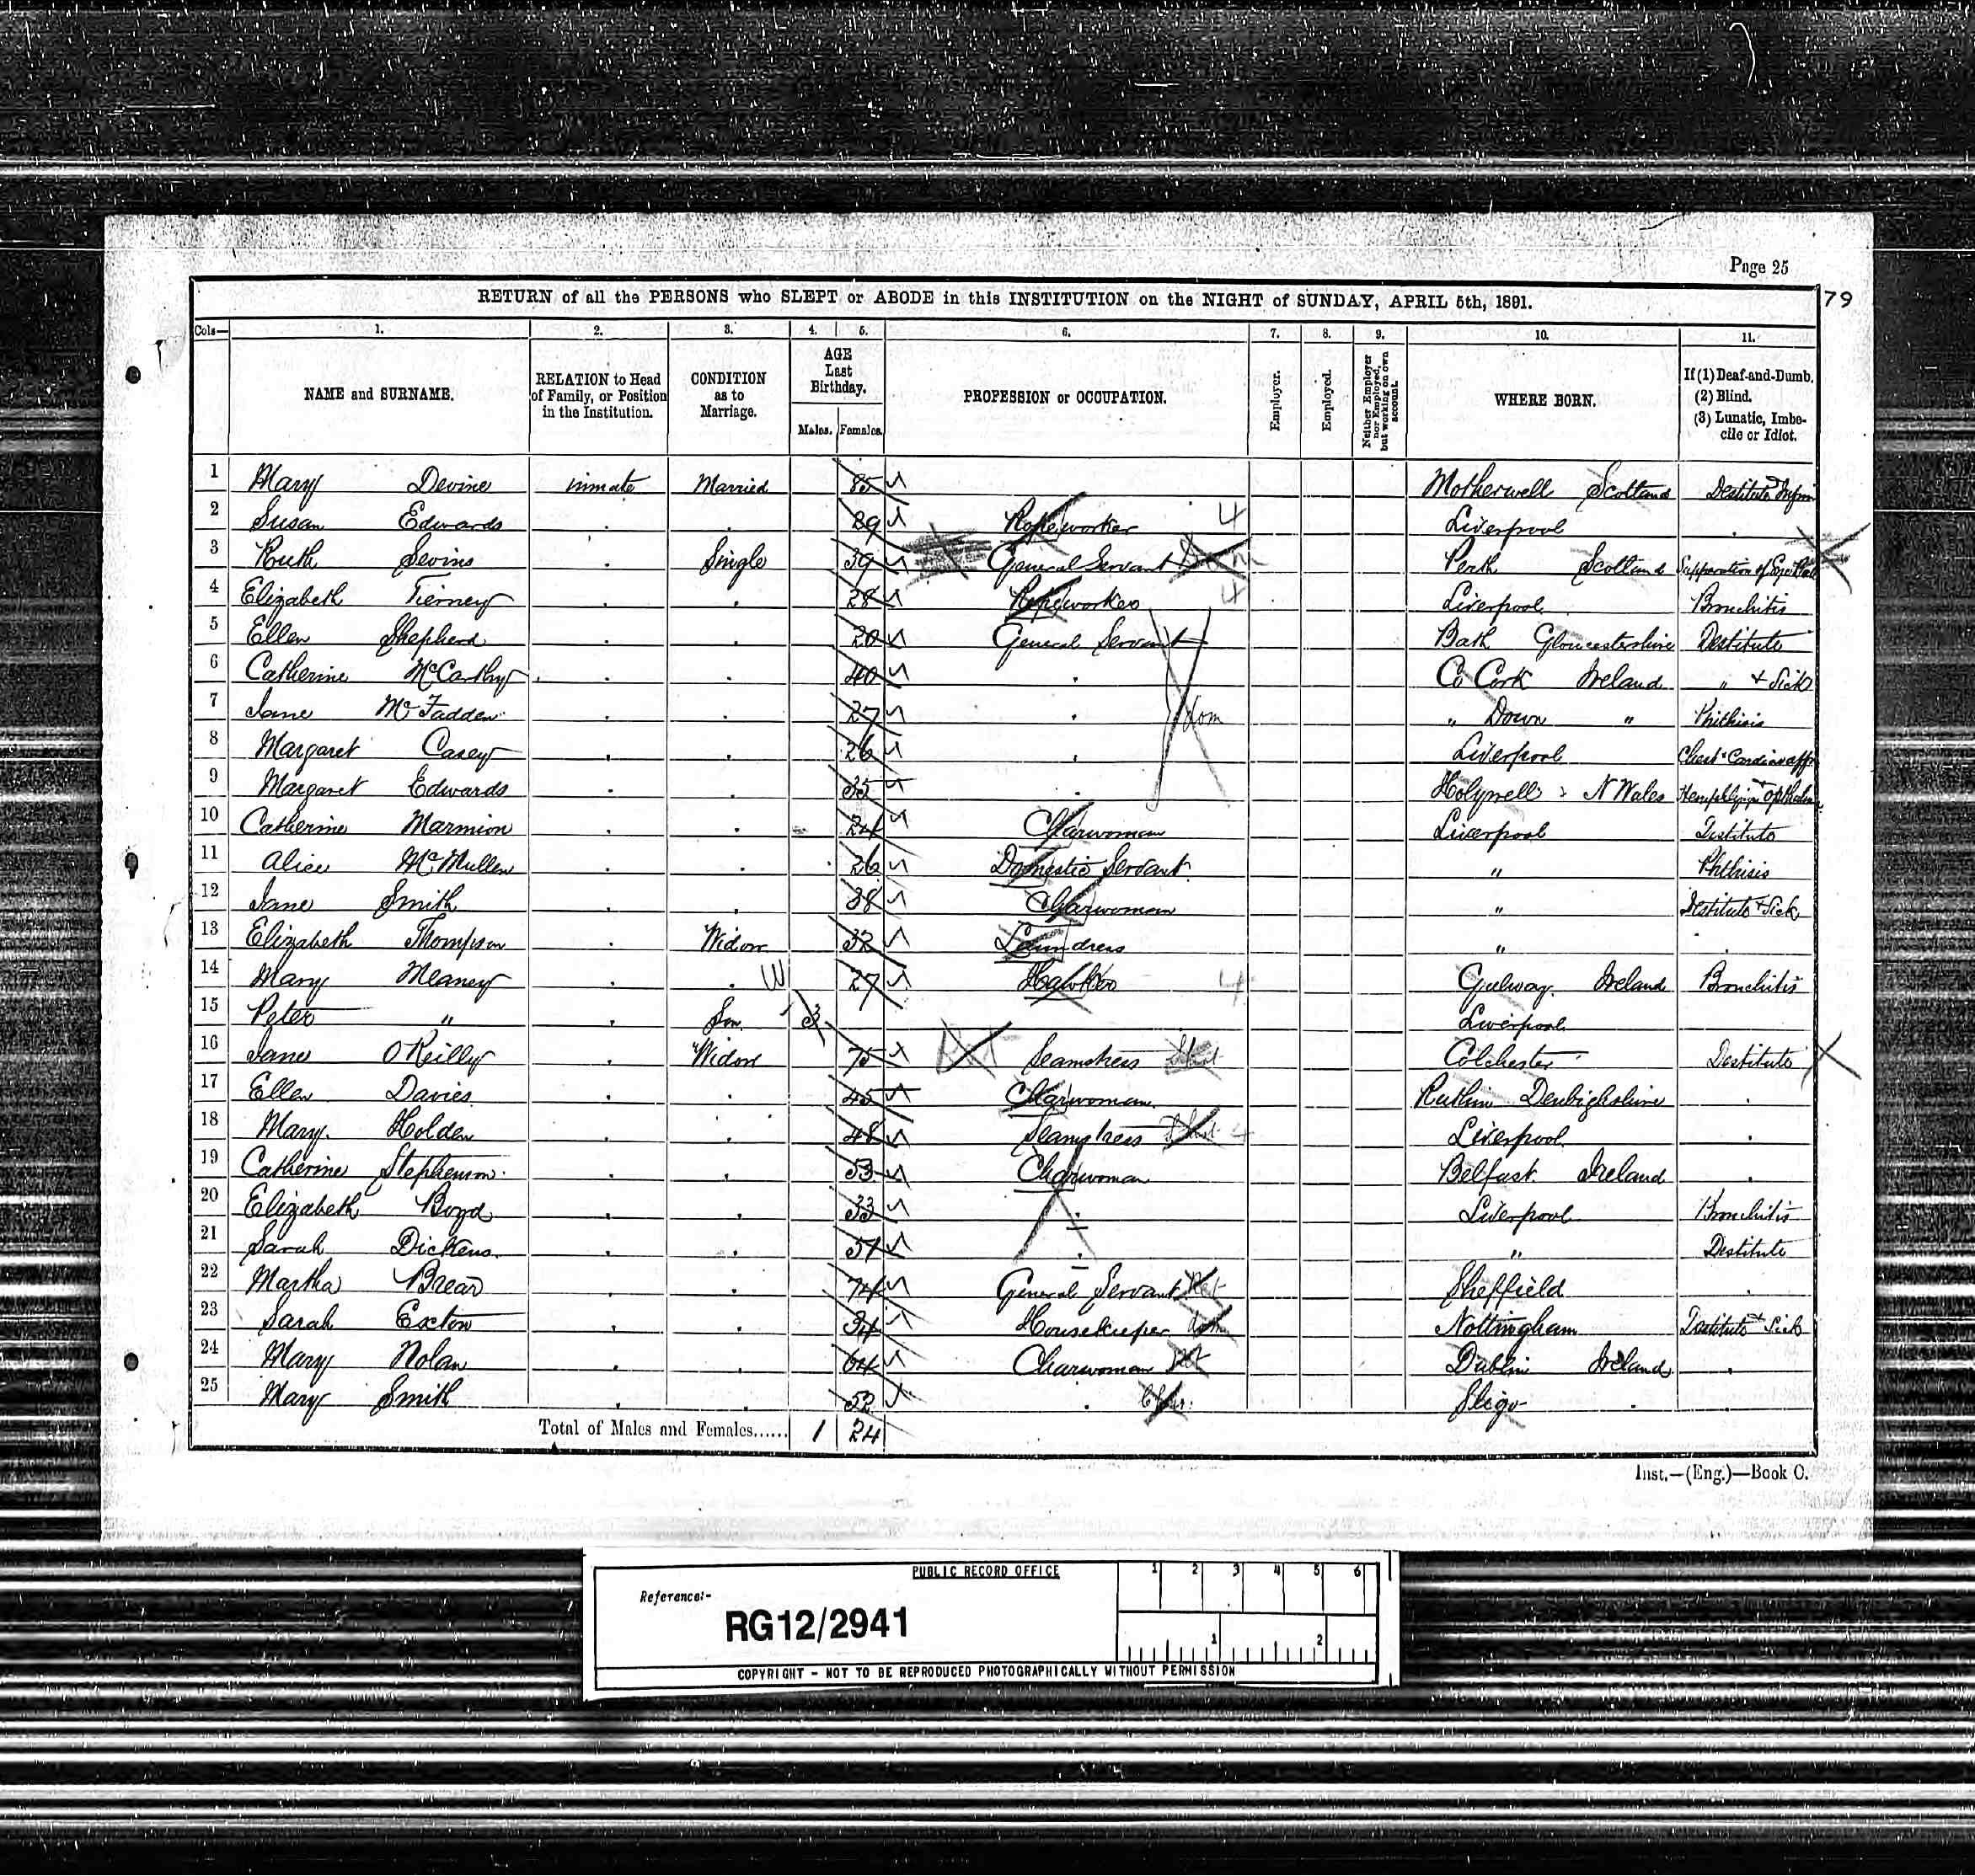 Page 25
79
RETURN of all the PERSONS who SLEPT or ABODE in this INSTITUTION on the NIGHT of SUNDAY, APRIL 5th, 1891.
Cols— 1. 2. 3. 4. 5. 6. 7. 8. 9. 10. 11.
NAME and SURNAME.
RELATION to Head of Family, or Position in the Institution.
CONDITION as to Marriage.
AGE Last Birthday.
Males. Females.
PROFESSION or OCCUPATION.
Employer.
Employed.
Neither Employer nor Employed, but working on own account.
WHERE BORN.
If (1) Deaf-and-Dumb. (2) Blind. (3) Lunatic, Imbecile or Idiot.
1 Mary Devine inmate Married 85 Motherwell Scotland Destitute
2 Susan Edwards . . 29 Ropeworker 4 Liverpool .
3 Ruth Sevins . Single 39 General Servant Dom Perth Scotland Supparation of
4 Elizabeth Tierney . . 28 Ropeworker 4 Liverpool Bronchitis
5 Ellen Shepherd . . 20 General Servant Bath Gloucestershire Destitute
6 Catherine McCarthy . . 40 . Co Cork Ireland " + Sick
7 Jane McFadden . . 27 . dom " Down " Phthisis
8 Margaret Casey . . 26 . Liverpool Chest + Cardiac affn
9 Margaret Edwards . . 35 . Holywell N Wales
10 Catherine Marmion . . 24 Charwoman Liverpool Destitute
11 Alice McMullen . . 26 Domestic Servant " Phthisis
12 Jane Smith . . 38 Charwoman " Destitute + Sick
13 Elizabeth Thompson . Widow 32 Laundress " .
14 Mary Meaney . . W 27 Hawker 4 Galway Ireland Bronchitis
15 Peter " . Son 3 Liverpool
16 Jane OReilly . Widow 75 Seamstress Colchester Destitute
17 Ellen Davies . . 45 Charwoman Ruthin Denbighshire .
18 Mary Holden . . 48 Seamstress 4 Liverpool .
19 Catherine Stephenson . . 53 Charwoman Belfast Ireland .
20 Elizabeth Boyd . . 33 . Liverpool Bronchitis
21 Sarah Dickens . . 51 . " Destitute
22 Martha Brear . . 74 General Servant Ret Sheffield .
23 Sarah Exton . . 34 Housekeeper dom Nottingham Destitute + Sick
24 Mary Nolan . . 64 Charwoman Ret Dublin Ireland .
25 Mary Smith . . 52 . Char. Sligo .
Total of Males and Females...... 1 24
Inst.—(Eng.)—Book C.
PUBLIC RECORD OFFICE
1 2 3 4 5 6
Reference:-
RG12/2941
1 2
COPYRIGHT - NOT TO BE REPRODUCED PHOTOGRAPHICALLY WITHOUT PERMISSION